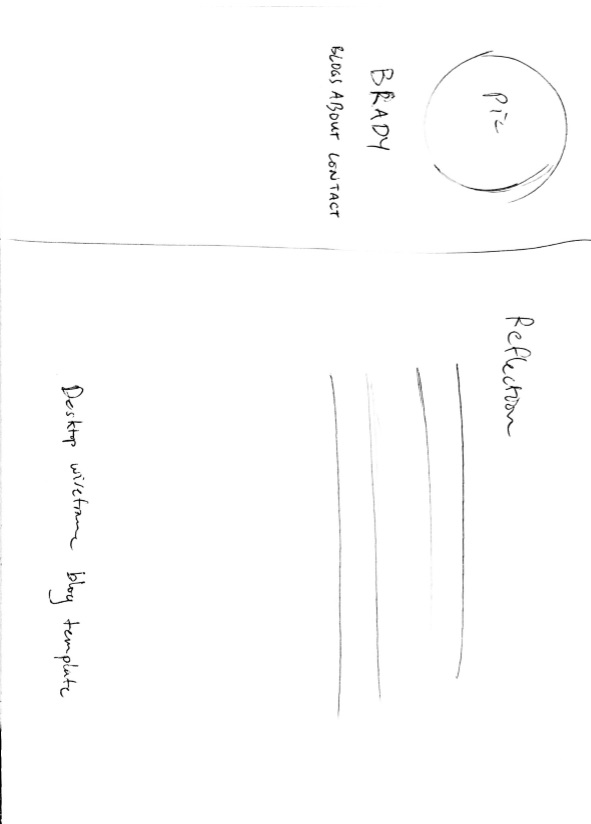 Pic
BRADY
BLOGS ABOUT CONTACT
Reflection
Desktop wireframe blog template